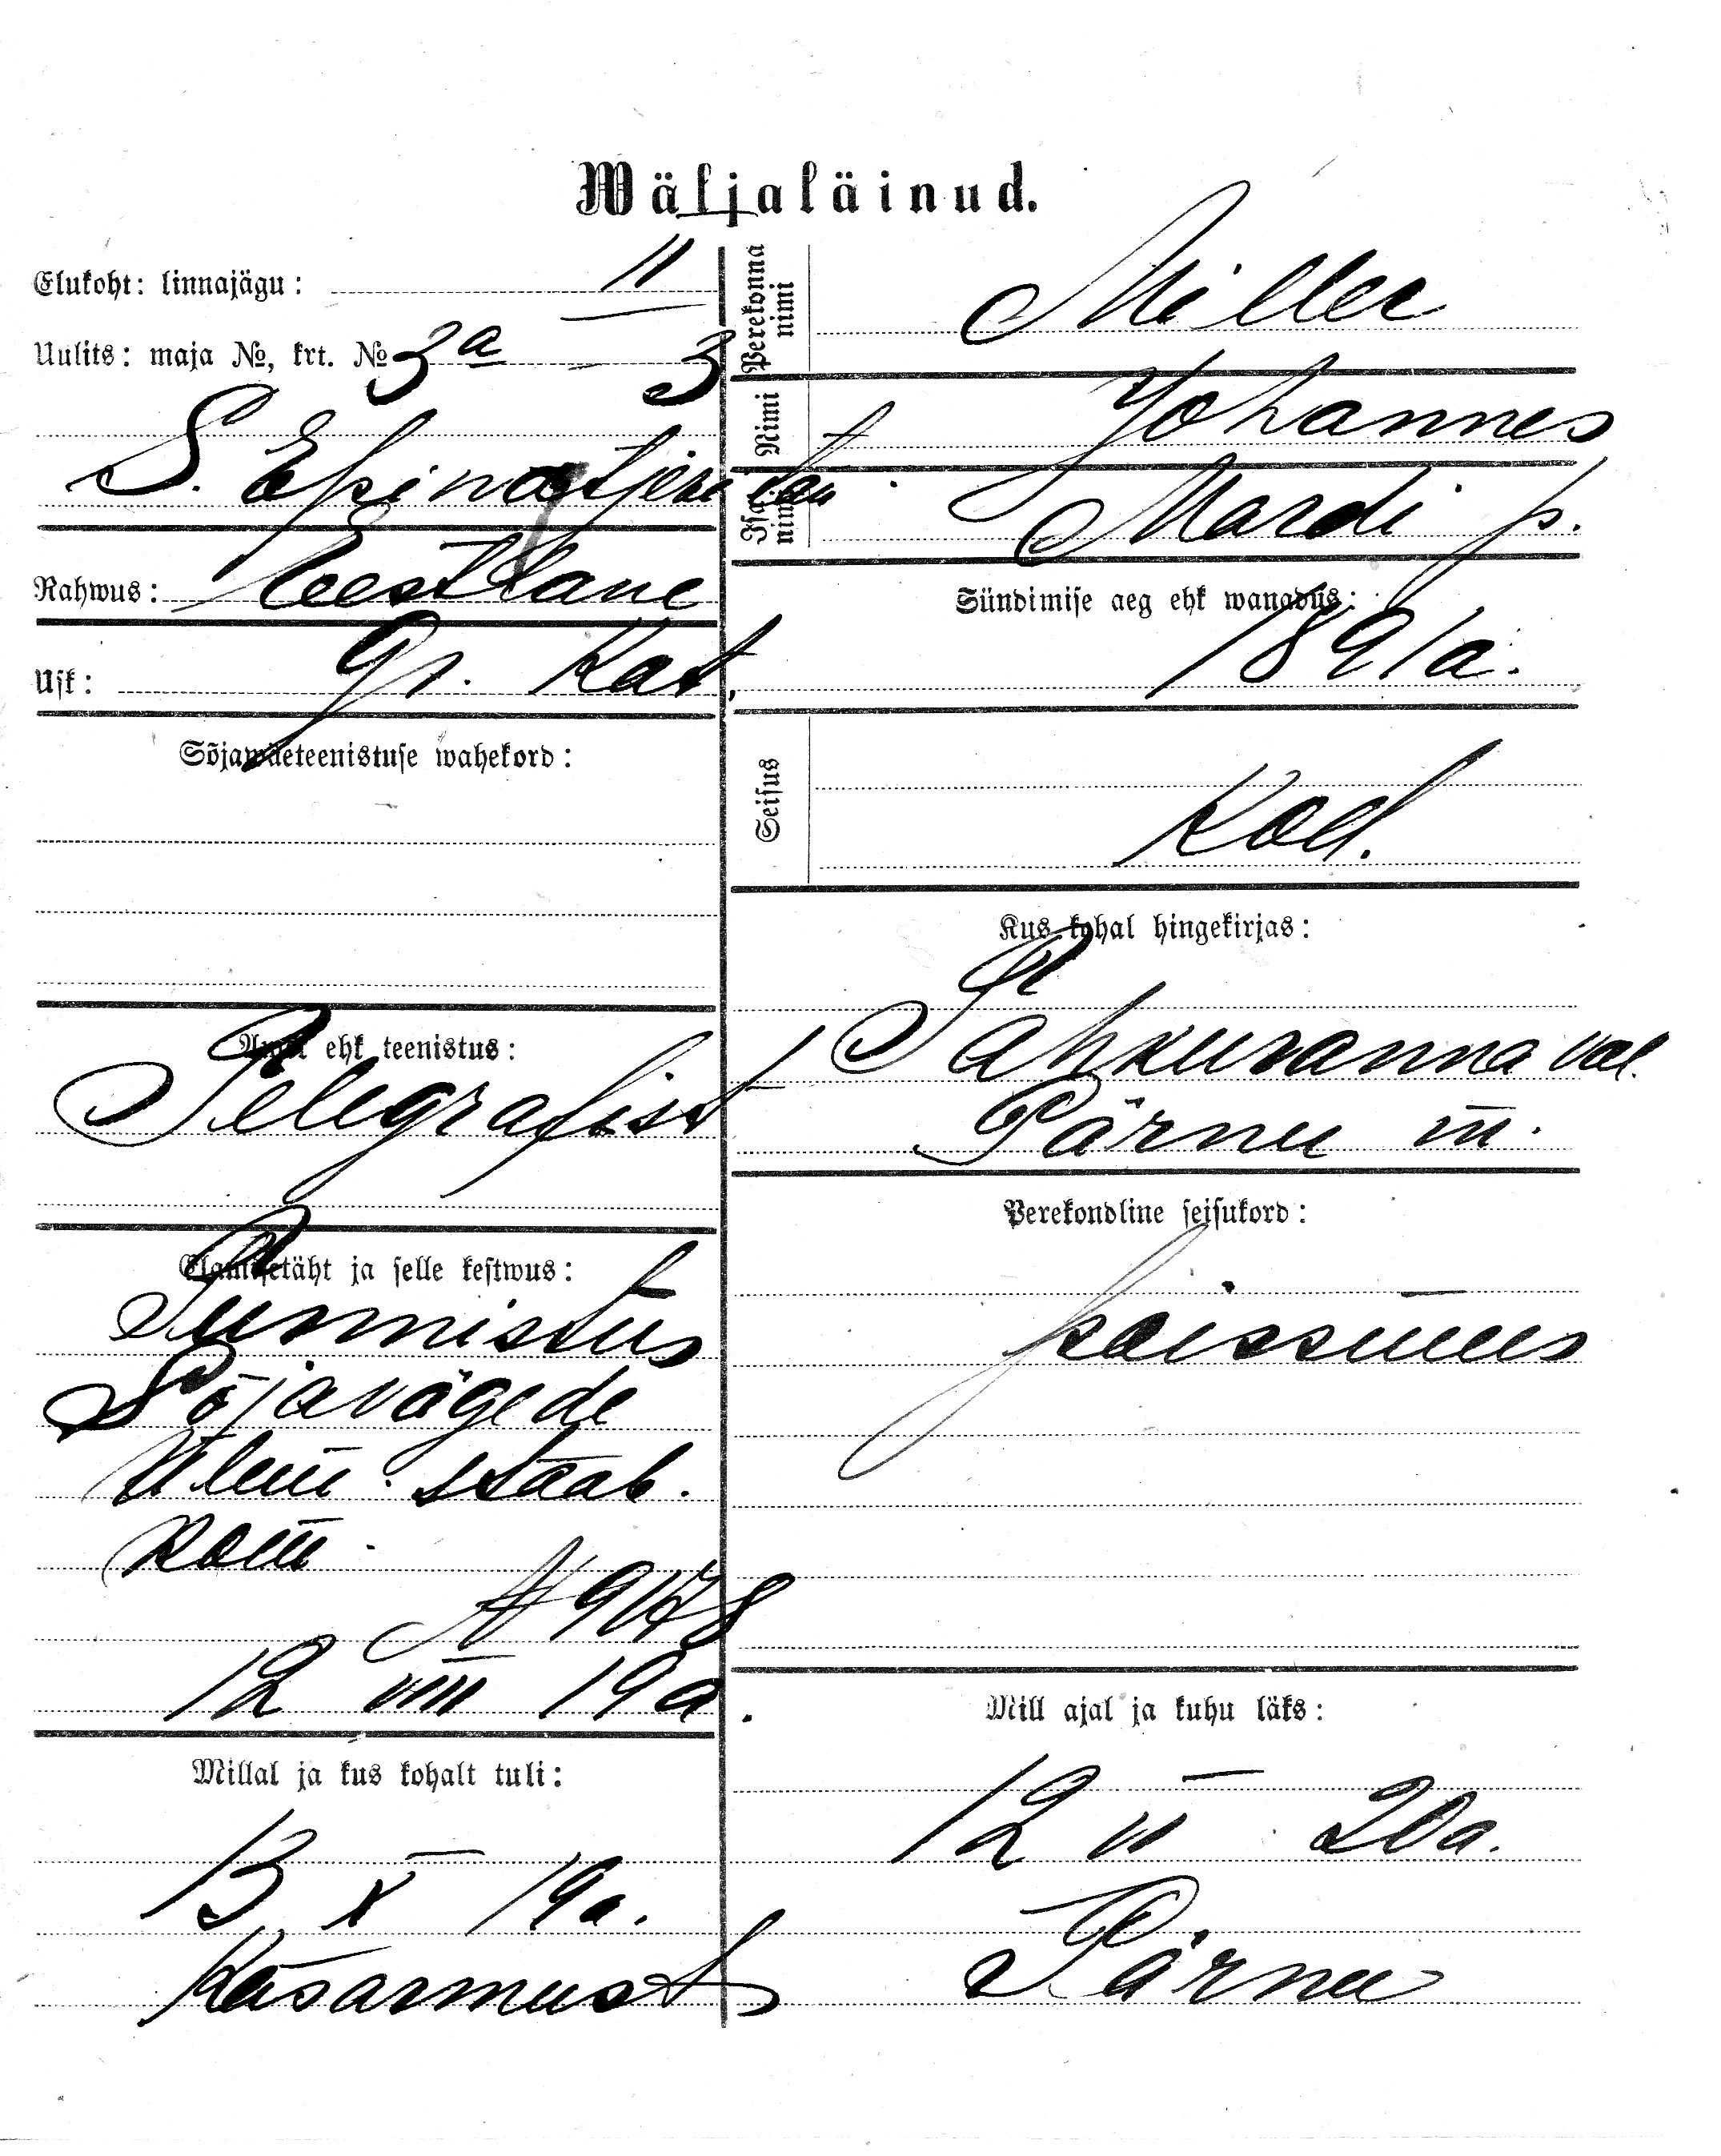 Wäljaläinud.
Elukoht: linnajägu: II
Uulits: maja №, krt. № 3a — 3
S.
Rahwus: Eestlane
Usk: Gr. Kat.
Sõjawäeteenistuse wahekord:
Amet ehk teenistus:
Telegrafist
Elamisetäht ja selle kestwus:
Tunnistus
Sõjavägede
Ülem. staab.
Kom̄.
№ 9178
12 VIII 19a.
Millal ja kus kohalt tuli:
13 X 19a.
Kasarmust
Perekonna nimi Miller
Nimi Johannes
Isa nimi Mardi p.
Sündimise aeg ehk wanadus:
1891a.
Seisus
Kod.
Kus kohal hingekirjas:
Tahkuranna val.
Pärnu m̄.
Perekondline seisukord:
poissmees
Mill ajal ja kuhu läks:
12 VI 20a.
Pärnu